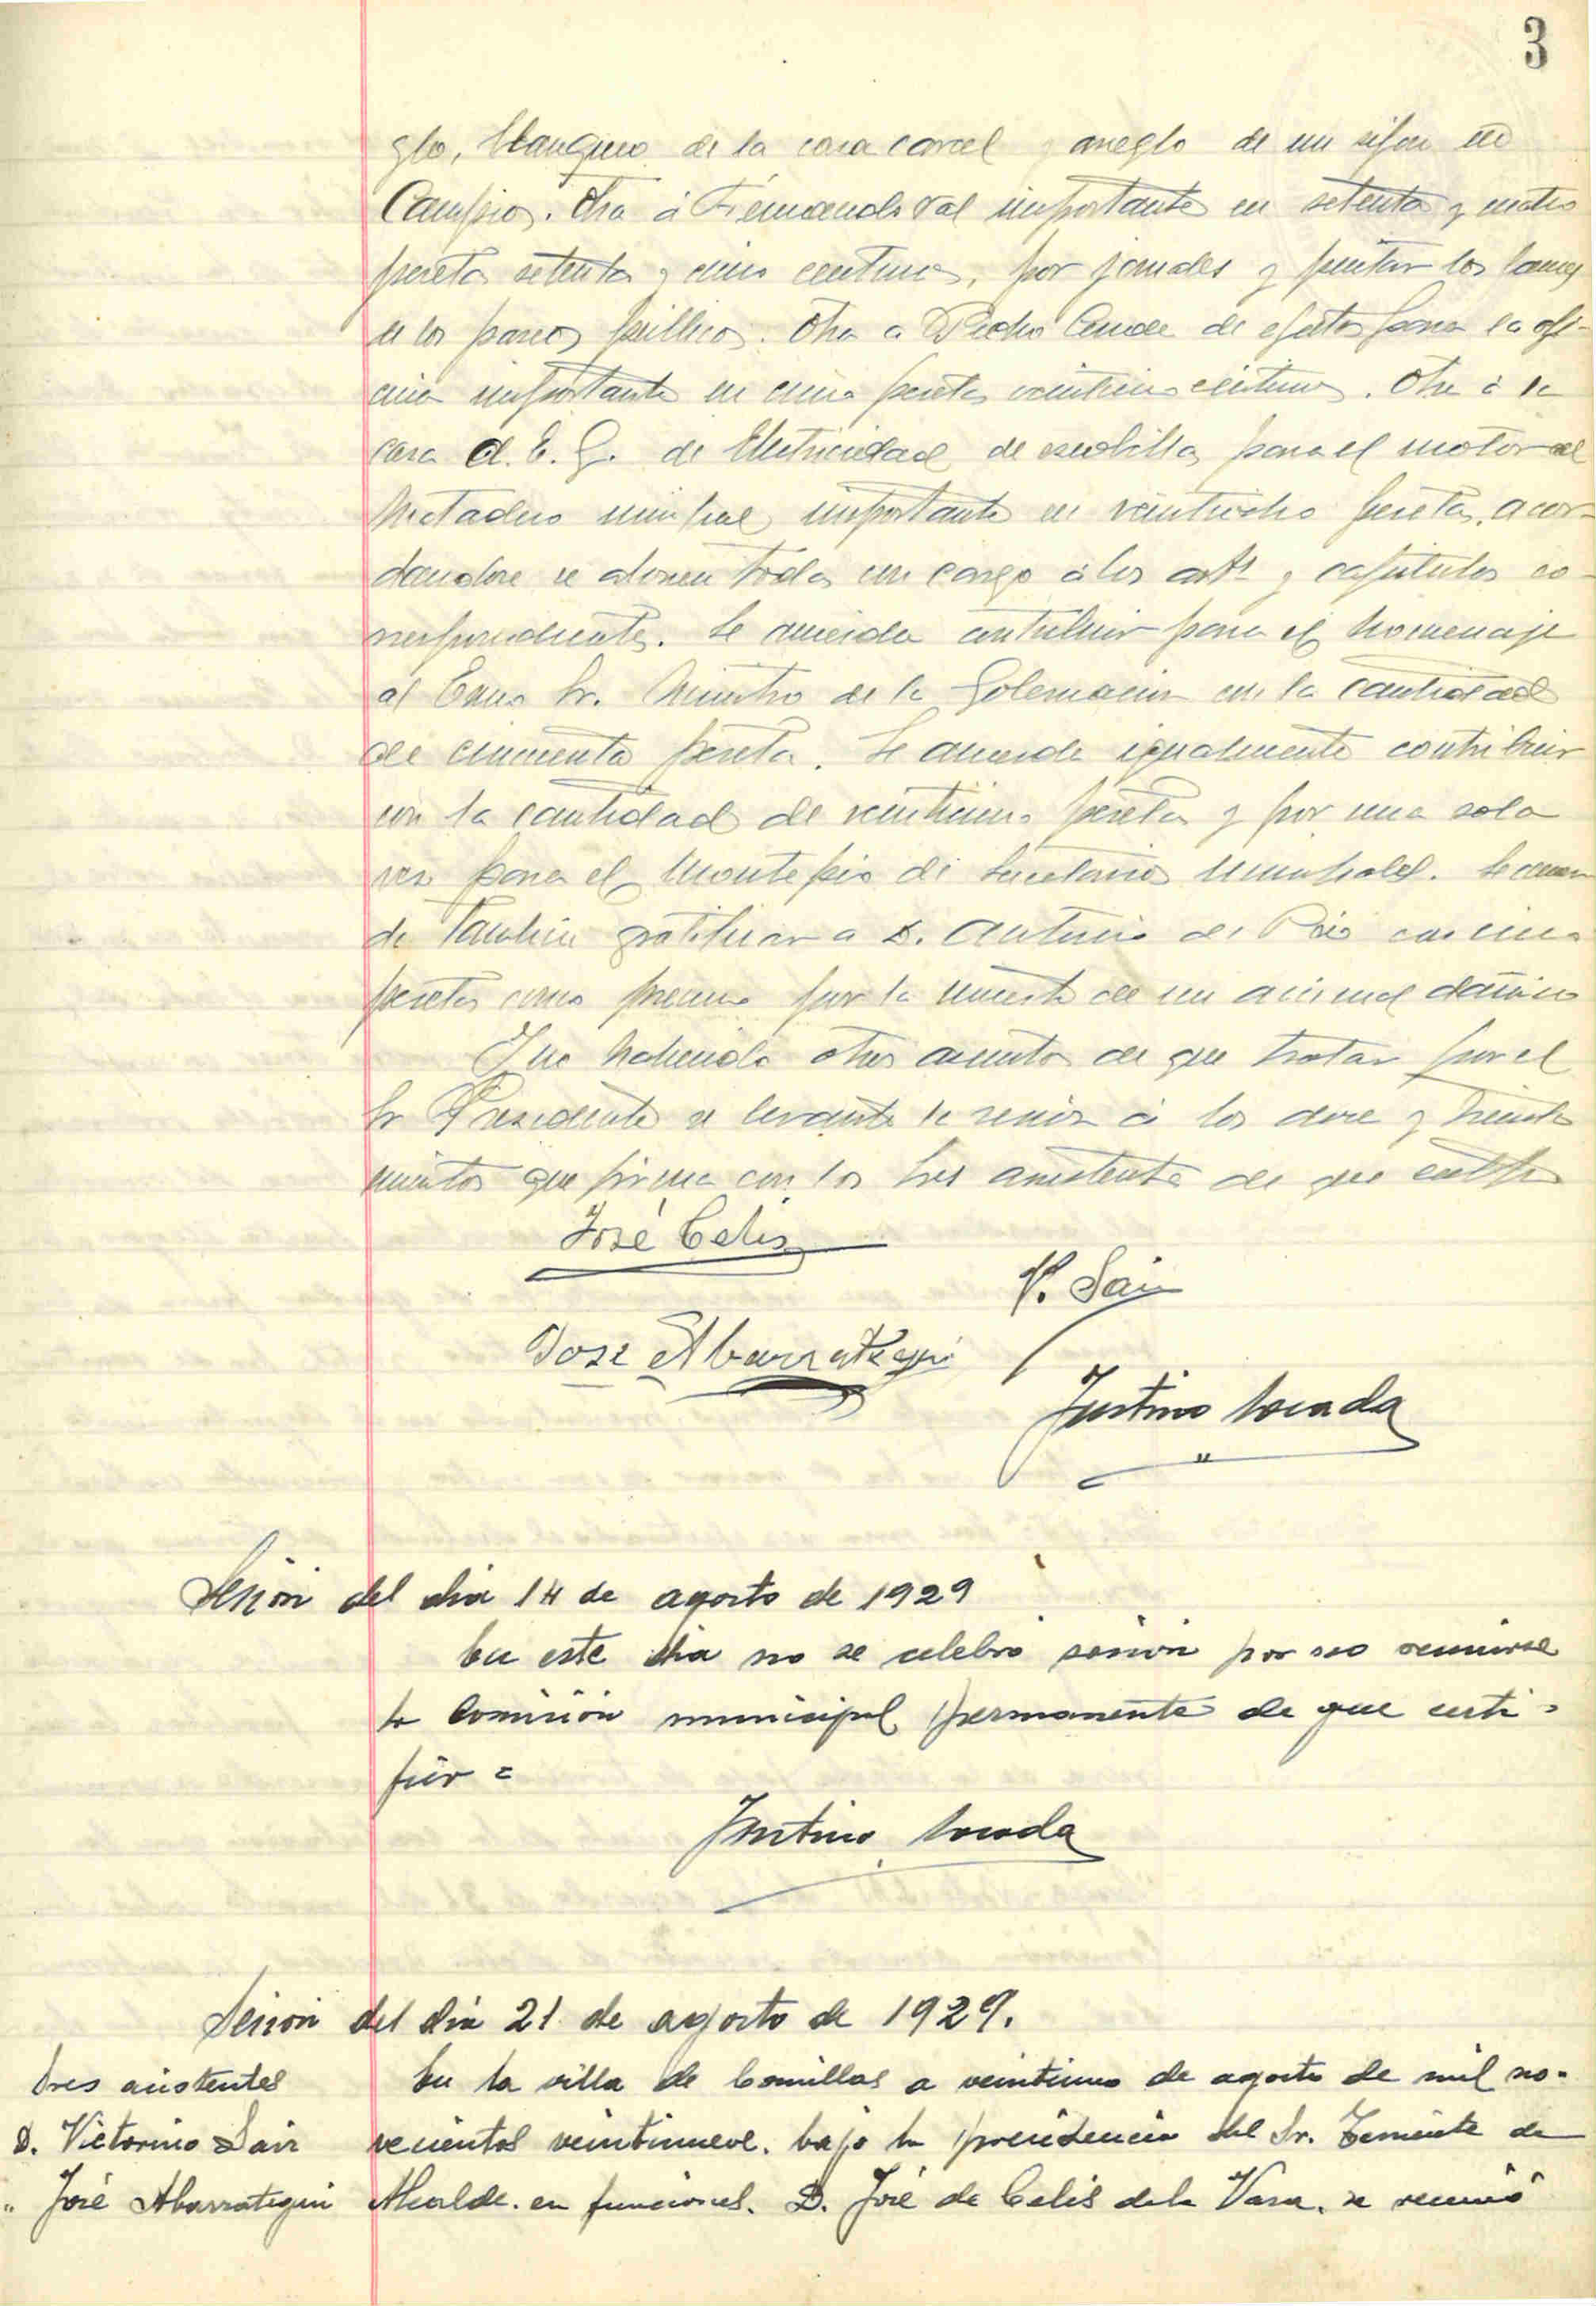 3
glo, blanqueo de la casa carcel y arreglo de un sifon en
Campios. Otra á Fernando Val importante en setenta y cuatro
pesetas setenta y cinco centimos, por jornales y pintar los bancos
de los paseos publicos. Otra a Pedro de efectos para la ofi-
cina importante en cinco pesetas veinticinco centimos. Otra á la
casa A. E. G. de Electricidad de escobillas para el motor del
Matadero municipal importante en veintiocho pesetas, acor-
dandose se abonen todas con cargo á los arts y capitulos co-
rrespondientes. Se acuerda contribuir para el homenaje
al Excmo Sr. Ministro de la Gobernacion con la cantidad
de cincuenta pesetas. Se acuerda igualmente contribuir
con la cantidad de veinticinco pesetas y por una sola
vez para el Montepio de Secretarios Municipales. Se acuer
da tambien gratificar a D. Antonio del Rio con cinco
pesetas como premio por la muerte de un animal dañino
Y no habiendo otros asuntos de que tratar por el
Sr Presidente se levanta la sesion á las doce y treinta
minutos que firma con los tres asistentes de que certifico
José Celis
V. Saiz
Jose Abarrategui
Justino
Sesion del dia 14 de agosto de 1929
En este dia no se celebró sesion por no reunirse
la Comisión municipal permanente de que certi-
fico =
Justino
Sesion del dia 21 de agosto de 1929.
Sres asistentes
D. Victorino Saiz
" José Abarrategui
En la villa de Comillas a veintiuno de agosto de mil no-
vecientos veintinueve. bajo la presidencia del Sr. Teniente de
Alcalde. en funciones. D. José de Celis de la Vara. se reunió